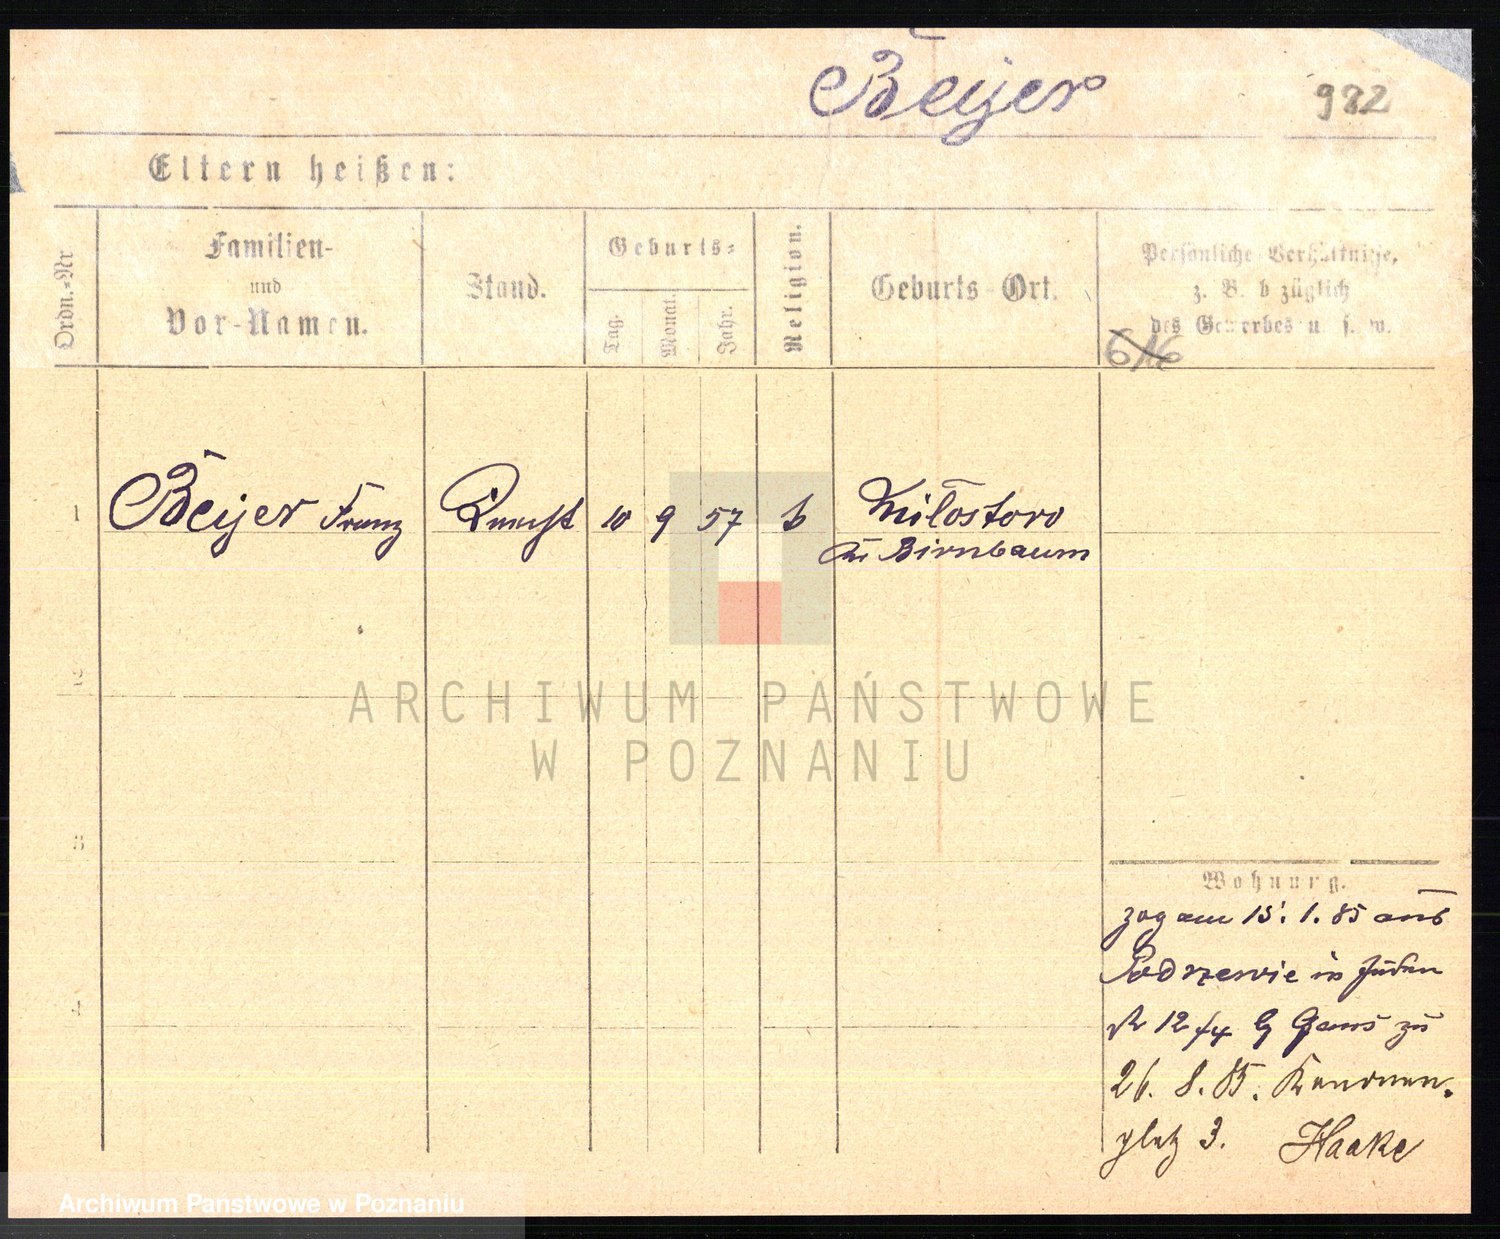 Beijer
982
Eltern heißen:
Ordn.=Nr
Familien-
und
Vor-Namen.
Stand.
Geburts=
Tag.
Monat.
Jahr.
Religion.
Geburts-Ort.
Persönliche Verhältnisse,
z. B. bezüglich
des Gewerbes u. s. w.
1
Beijer Franz
Knecht
10
9
57
Miłostowo
Kr Birnbaum
2
3
4
Wohnung.
zog am 15. 1. 85 aus
Podrzewie in Juden
str 12/14 bj Gans zu
26. 8. 85.
platz 3. Haake
ARCHIWUM PAŃSTWOWE
W POZNANIU
Archiwum Państwowe w Poznaniu